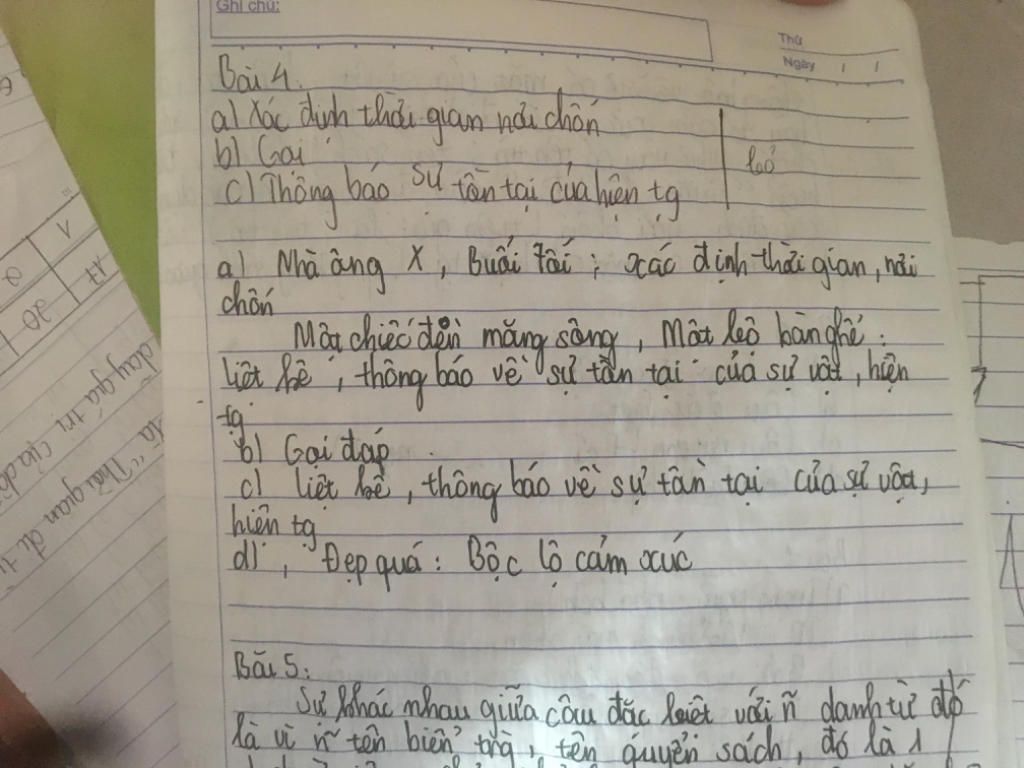 Ghi chú:
Thứ
Ngày / /
Bài 4.
a) Xác định thời gian nơi chốn
b) Gọi
c) Thông báo sự tồn tại của hiện tg
a) Nhà ông X, Buổi tối : xác định thời gian, nơi
chốn
Một chiếc đèn măng sông, Một leô bàn ghế :
liệt kê, thông báo về sự tồn tại của sự vật, hiện
tg
b) Gọi đáp
c) liệt kê, thông báo về sự tồn tại của sự vật,
hiện tg
d), Đẹp quá : Bộc lộ cảm xúc
Bài 5:
Sự khác nhau giữa câu đặc biệt với ~n danh từ đó
là vì ~n tên biển trg, tên quyển sách, đó là 1
1
17
2
20